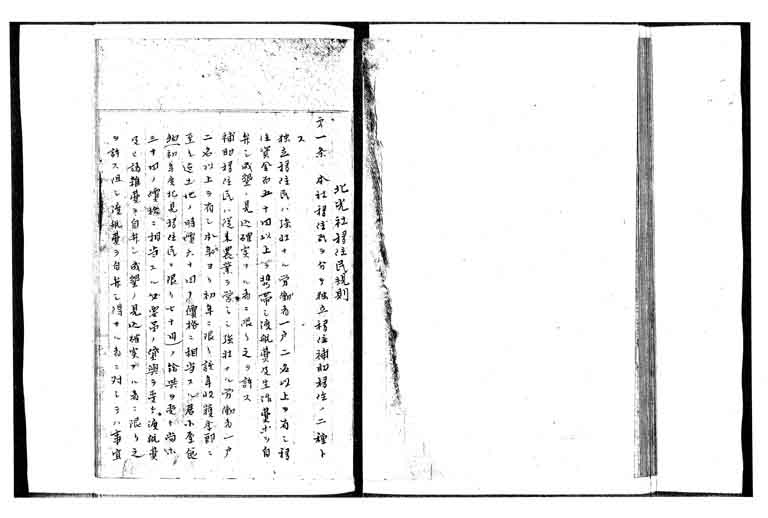 北光社移住民規則
第一条 本社移住民ヲ分テ独立移住補助移住ノ二種ト
ス
独立移住民ハ強壮ナル労働者一戸二名以上ヲ有シ移
住資金百五十円以上ヲ携帯シ渡航費及生活費等ヲ自
弁シ成墾ノ見込確実ナル者ニ限リ之ヲ許ス
補助移住民ハ従来農業ヲ営ミシ強壮ナル労働者一戸
二名以上ヲ有シ本社ヨリ初年ニ限リ該年収穫季節ニ
至ル迄土地ノ時価六十円ノ価格ニ相当スル
初年度北見移住民ニ限リ七十円ノ給与ヲ受ケ尚ホ
三十円ノ価格ニ相当スル ノ貸与ヲ受ケ渡航費
其ノ諸雑費ヲ自弁シ成墾ノ見込確実ナル者ニ限リ之
ヲ許ス但シ渡航費ヲ自弁シ得サル者ニ対シテハ事宜